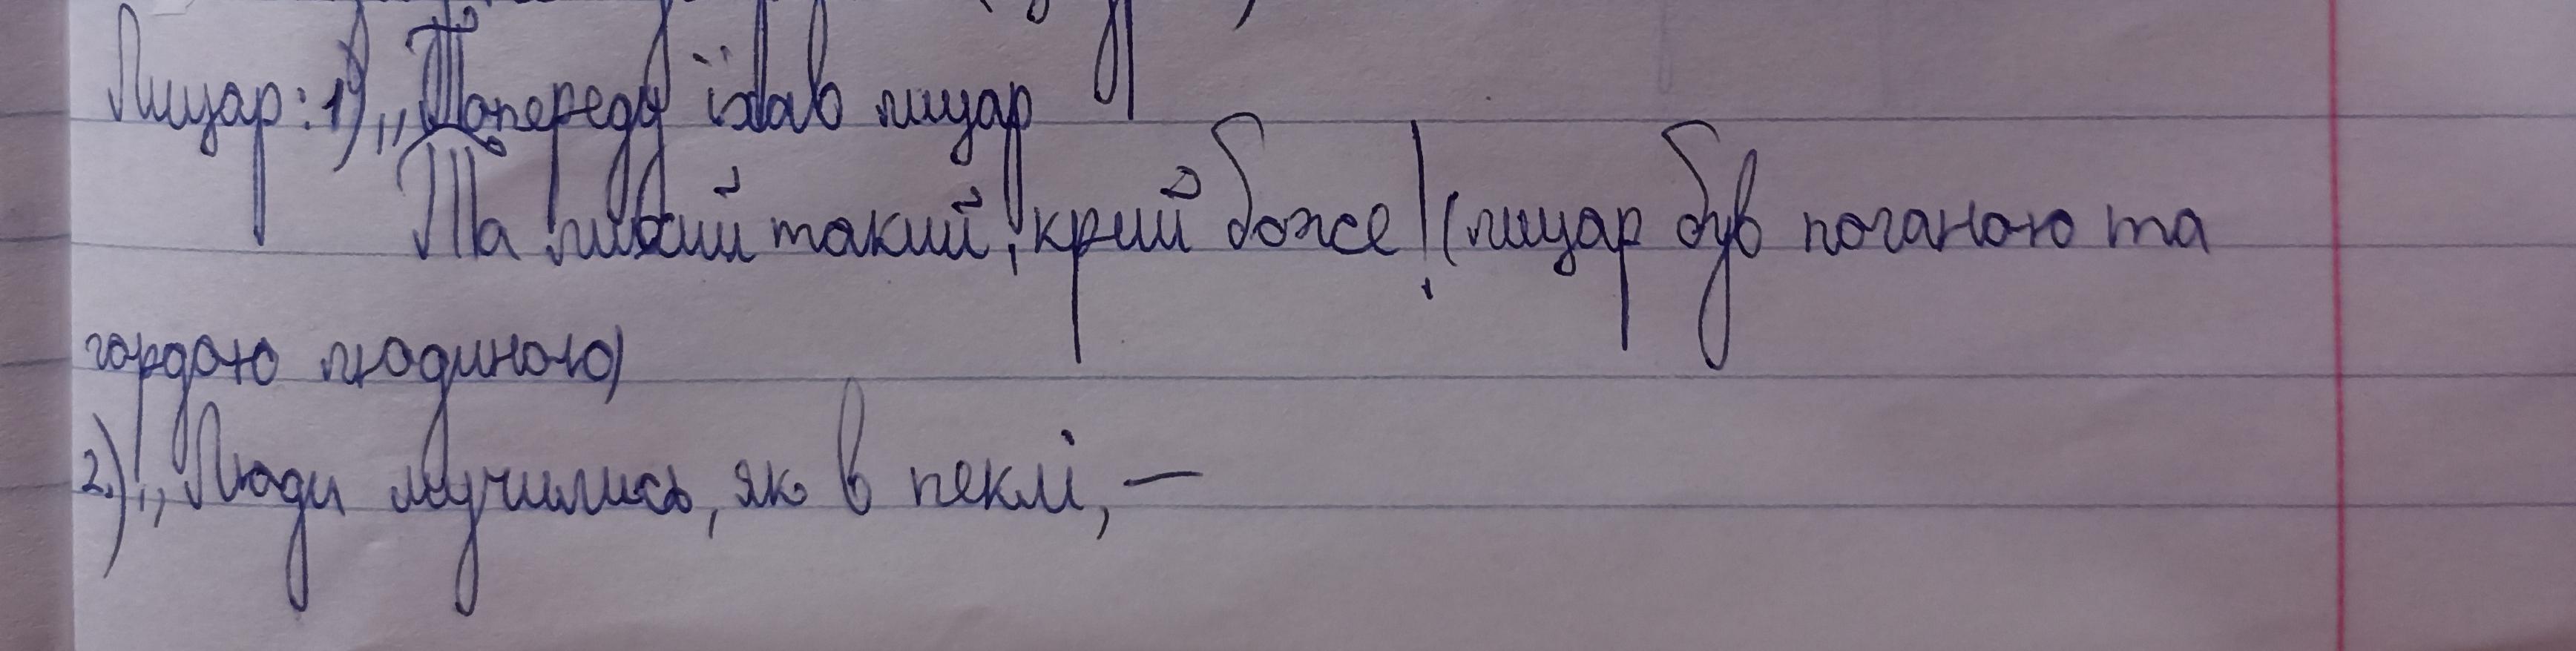 Лицар: 1) „Попереду їхав лицар
Та лихий такий, крий боже! (лицар був поганою та
гордою людиною)
2.) „Люди мучились, як в пеклі, —